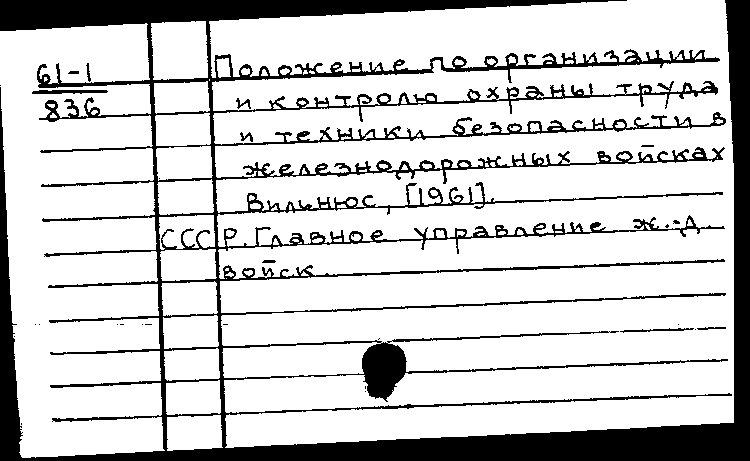 61-1
836
Положение по организации
и контролю охраны труда
и техники безопасности в
железнодорожных войсках
Вильнюс, [1961].
СССР. Главное управление ж.-д.
войск.